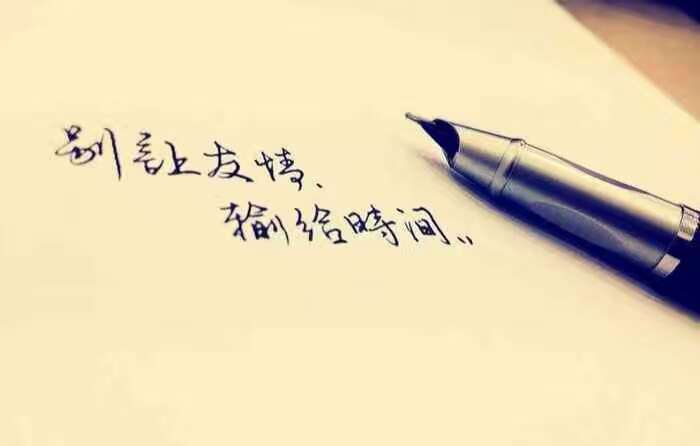 别让友情、
输给時间..